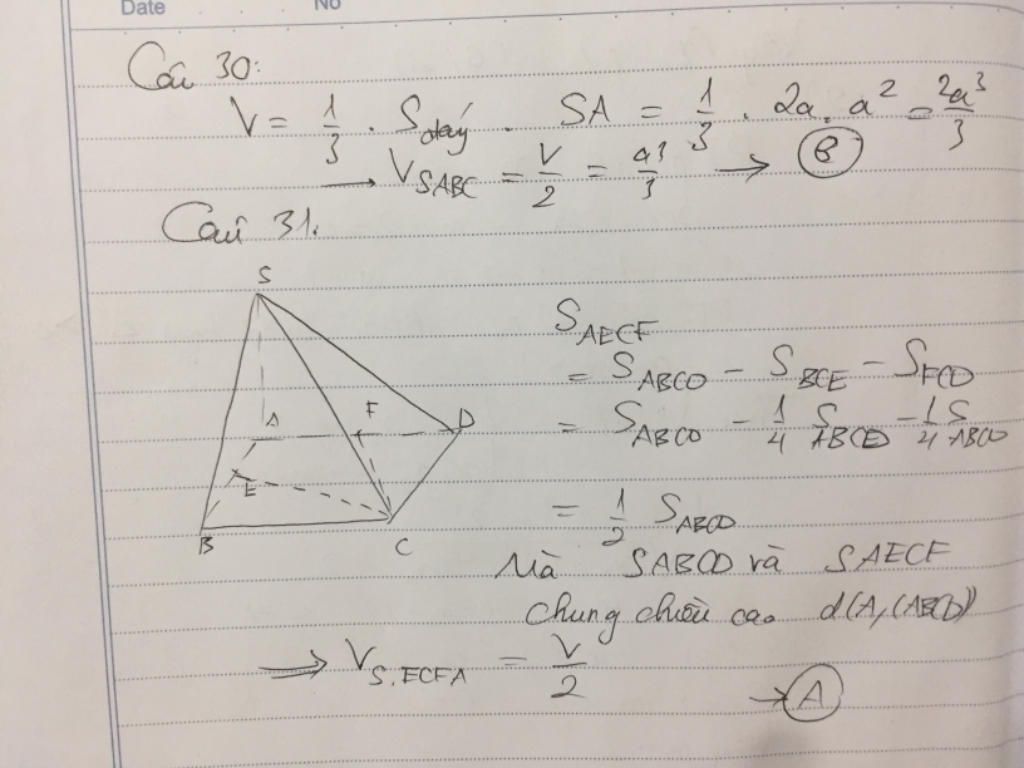 Date No
Câu 30:
V = 1/3 . S đáy . SA = 1/3 . 2a . a² = 2a³/3
→ V SABC = V/2 = a³/3 → B
Câu 31.
S
A F D
E
B C
S AECF
= S ABCD - S BCE - S FCD
= S ABCD - 1/4 S ABCD - 1/4 S ABCD
= 1/2 S ABCD
Mà SABCD và SAECF
chung chiều cao d(A,(ABCD))
⟹ V S.ECFA = V/2
→ A